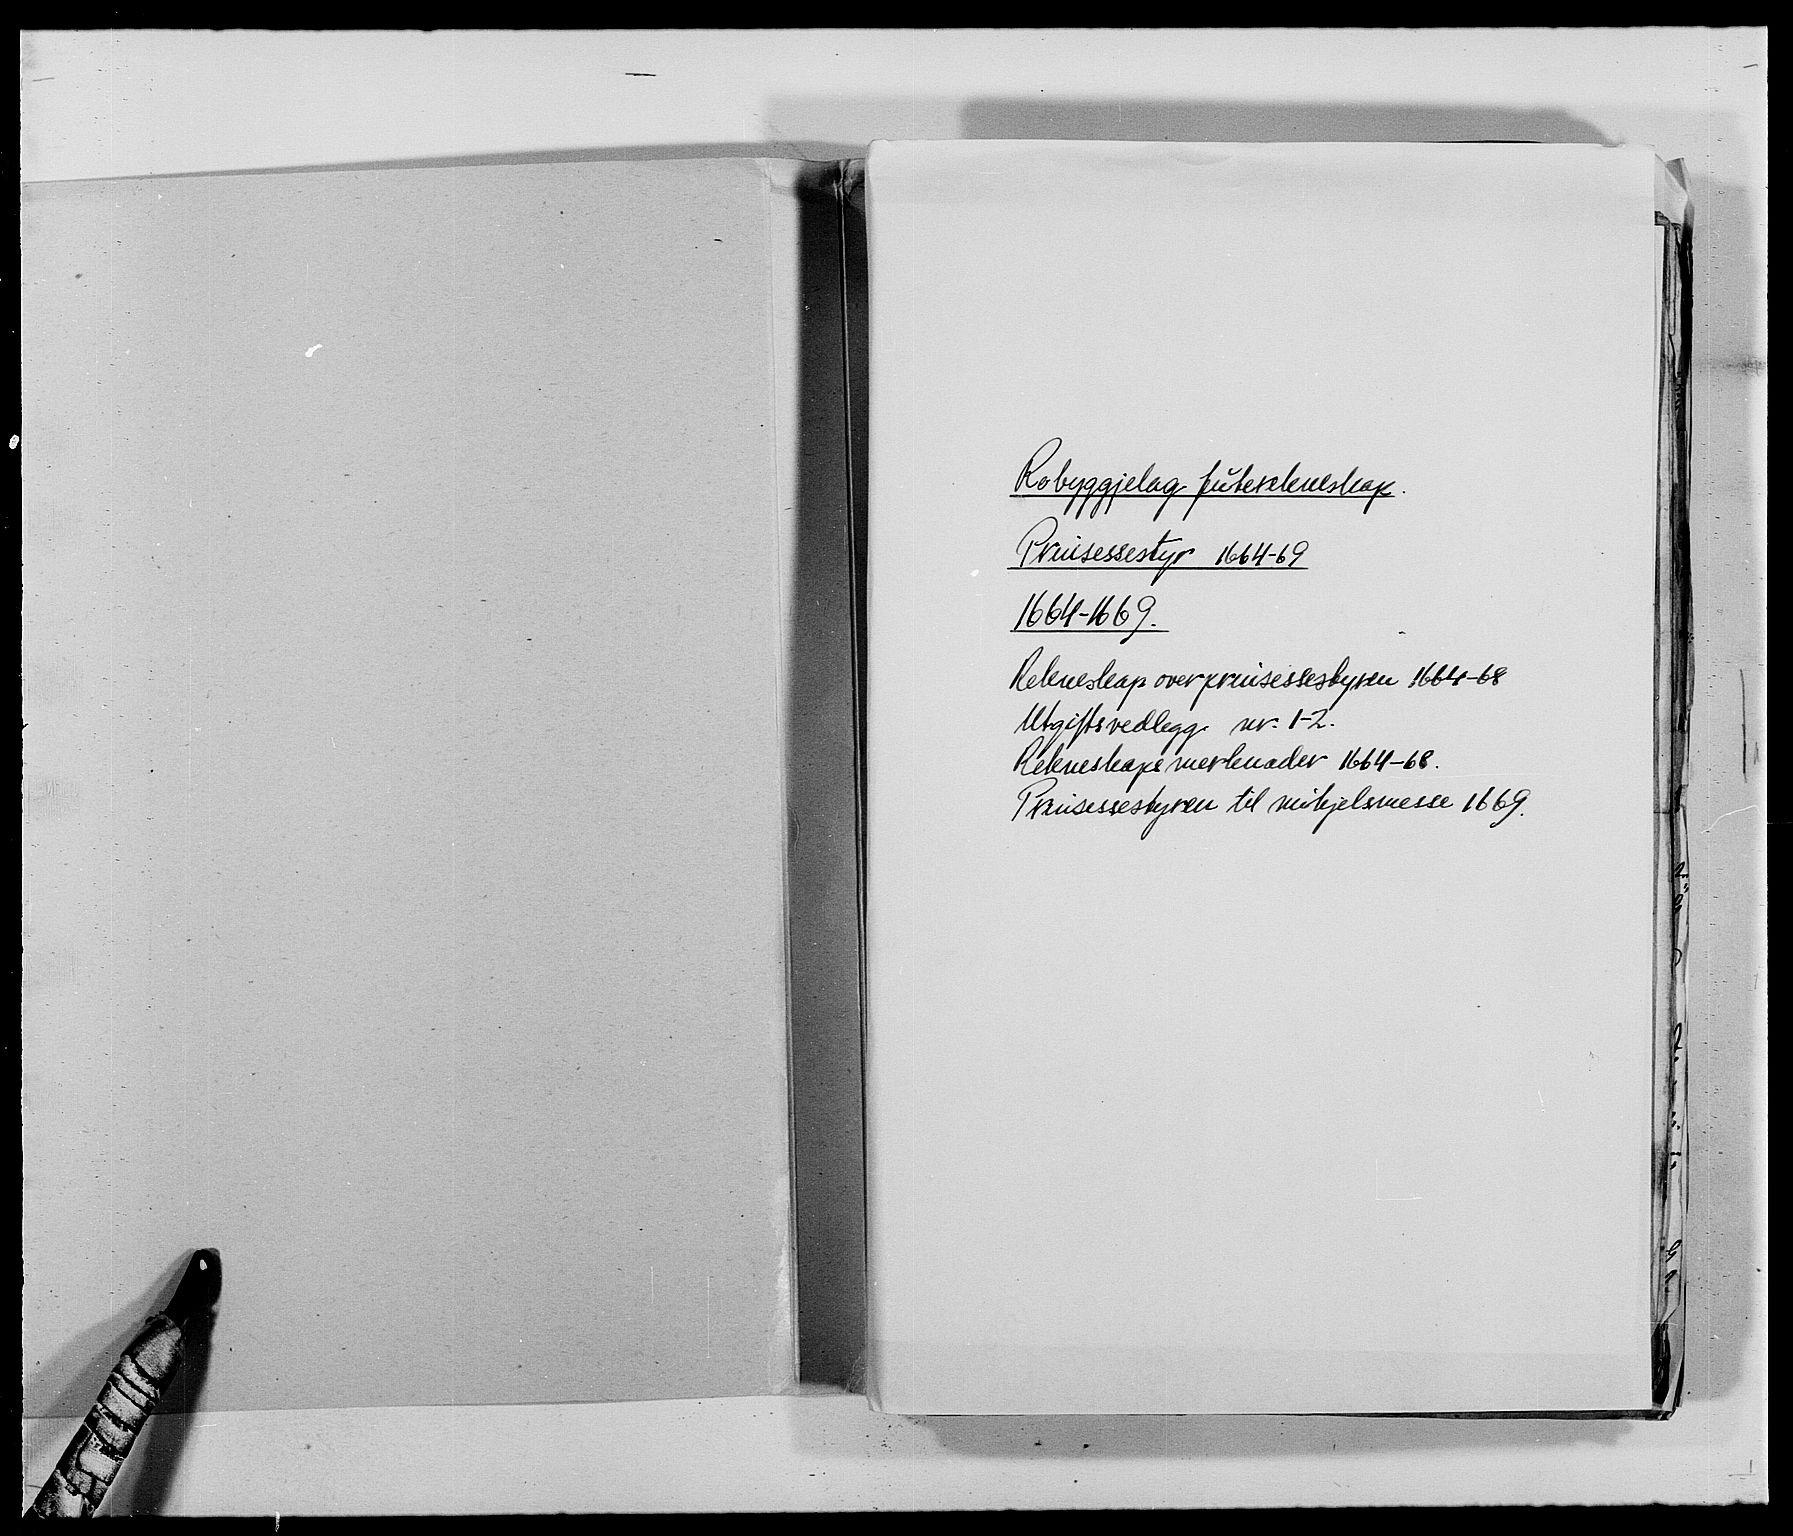 Robyggjelag futerekneskap.
Prinsessestyr 1664-69
1664-1669.
Rekneskap over prinsessestyren 1664-68
Utgiftsvedlegg nr. 1-2.
Rekneskaps merknader 1664-68.
Prinsessestyren til mikjelsmesse 1669.